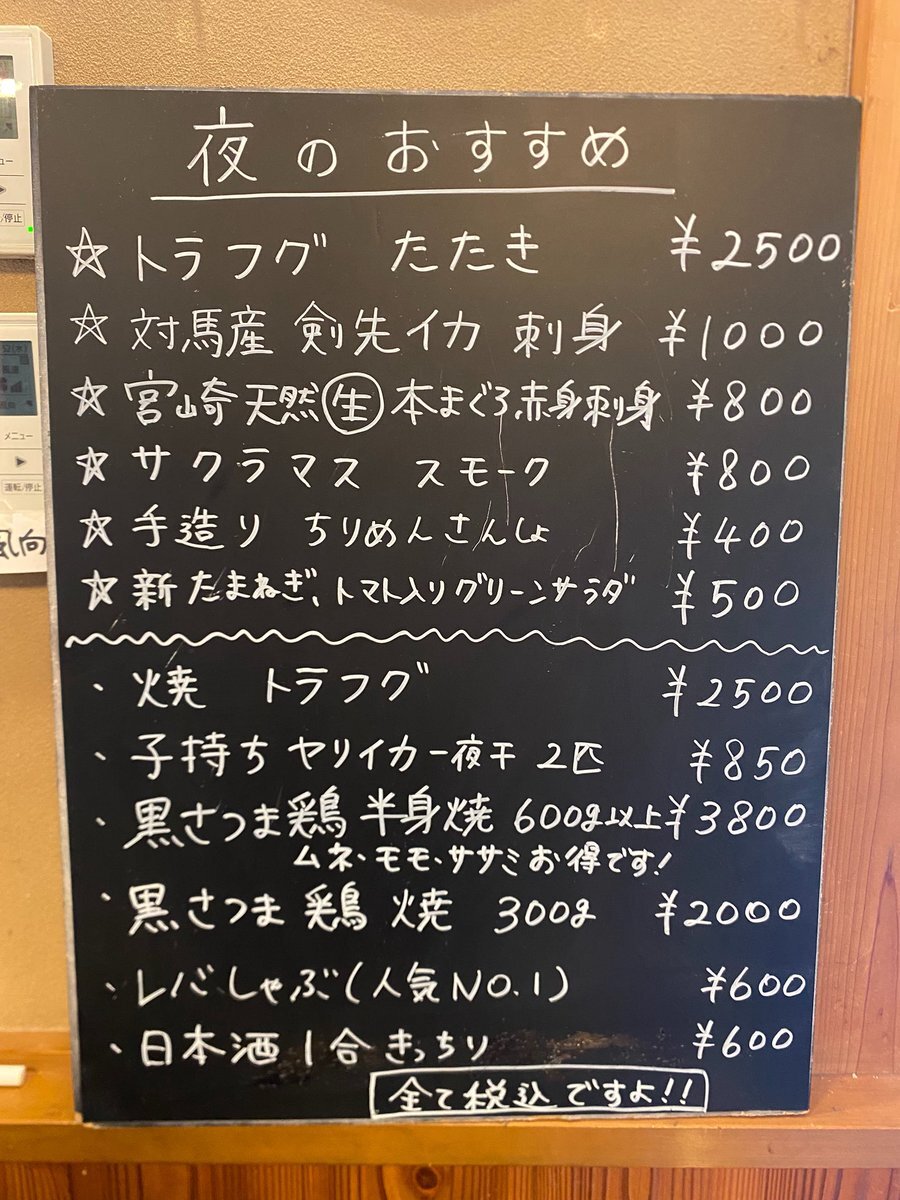 夜のおすすめ
☆トラフグ たたき ¥2500
☆対馬産 剣先イカ 刺身 ¥1000
☆宮崎天然生本まぐろ赤身刺身 ¥800
☆サクラマス スモーク ¥800
☆手造り ちりめんさんしょ ¥400
☆新たまねぎ、トマト入りグリーンサラダ ¥500
・焼 トラフグ ¥2500
・子持ち ヤリイカ一夜干 2匹 ¥850
・黒さつま鶏 半身焼 600g以上 ¥3800
ムネ・モモ・ササミお得です!
・黒さつま鶏 焼 300g ¥2000
・レバしゃぶ(人気NO.1) ¥600
・日本酒1合きっちり ¥600
全て税込ですよ!!
メニュー
運転/停止
風向